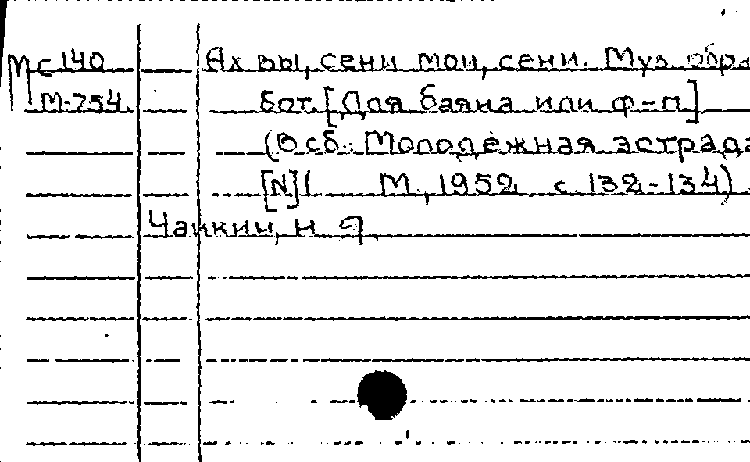 МС 140 Ах вы, сени мои, сени. Муз. обра
М-754. бот. [Для баяна или ф-п]
(В сб.: Молодёжная эстрада
[N] 1 М., 1952 с. 132-134)
Чайкин, Н. Я.